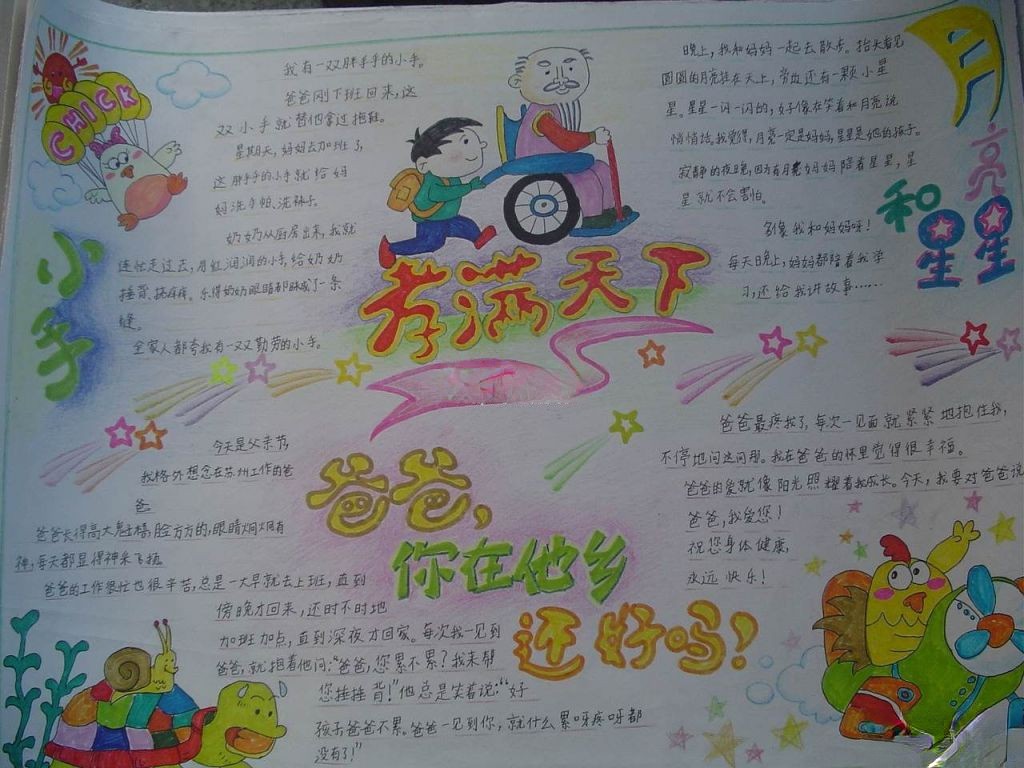 CHICK
小手
我有一双胖手手的小手。
爸爸刚下班回来,这
双小手就替他拿过拖鞋。
星期天,妈妈去加班了,
这胖手手的小手就给妈
妈洗手帕、洗袜子。
奶奶从厨房出来,我就
连忙走过去,用红润润的小手,给奶奶
捶背、挠痒痒。乐得奶奶眼睛都眯成了一条
缝。
全家人都夸我有一双勤劳的小手。
孝满天下
月亮和星星
晚上,我和妈妈一起去散步。抬头看见
圆圆的月亮挂在天上,旁边还有一颗小星
星。星星一闪一闪的,好像在笑着和月亮说
悄悄话。我觉得,月亮一定是妈妈,星星是她的孩子。
寂静的夜晚,因为有月亮妈妈陪着星星,星
星就不会害怕。
多像我和妈妈呀!
每天晚上,妈妈都陪着我学
习,还给我讲故事……
爸爸,
你在他乡
还好吗?
今天是父亲节,
我格外想念在苏州工作的爸
爸
爸爸长得高大魁梧,脸方方的,眼睛炯炯有
神,每天都显得神采飞扬
爸爸的工作很忙也很辛苦,总是一大早就去上班,直到
傍晚才回来,还时不时地
加班加点,直到深夜才回家。每次我一见到
爸爸,就抱着他问:“爸爸,您累不累?我来帮
您捶捶背!”他总是笑着说:“好
孩子爸爸不累。爸爸一见到你,就什么累呀疼呀都
没有了!”
爸爸最疼我了,每次一见面就紧紧地抱住我,
不停地问这问那。我在爸爸的怀里觉得很幸福。
爸爸的爱就像阳光照耀着我成长。今天,我要对爸爸说
爸爸,我爱您!
祝您身体健康,
永远快乐!